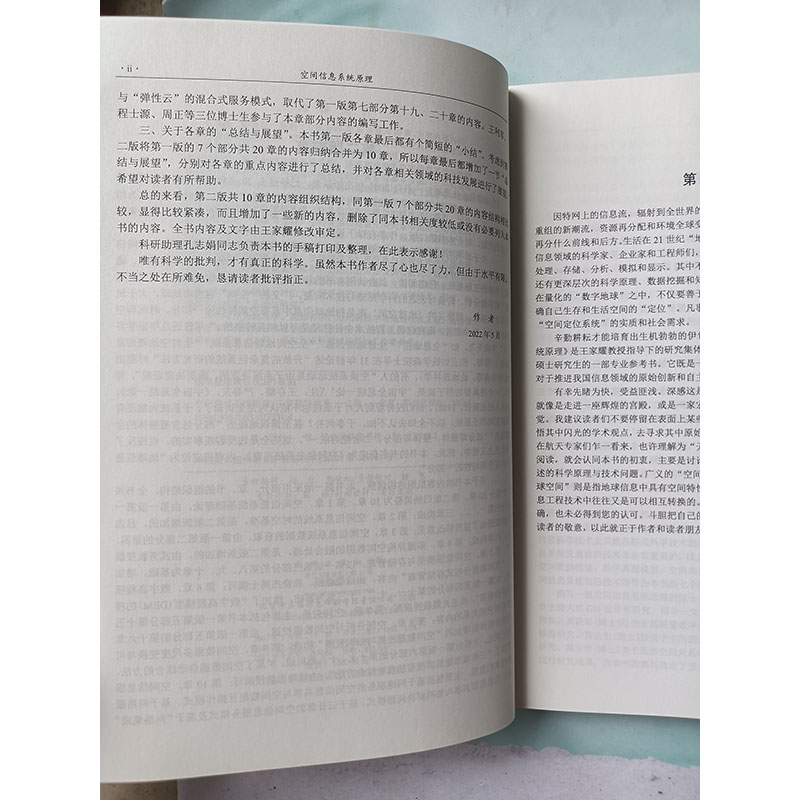 · ii ·
空间信息系统原理
与“弹性云”的混合式服务模式，取代了第一版第七部分第十九、二十章的内容。王
程士源、周正等三位博士生参与了本章部分内容的编写工作。
三、关于各章的“总结与展望”。本书第一版各章最后都有个简短的“小结”。考虑到第
二版将第一版的 7 个部分共 20 章的内容归纳合并为 10 章，所以每章最后都增加了一节“总
结与展望”，分别对各章的重点内容进行了总结，并对各章相关领域的科技发展进行了展望，
希望对读者有所帮助。
总的来看，第二版共 10 章的内容组织结构，同第一版 7 个部分共 20 章的内容结构相比
较，显得比较紧凑，而且增加了一些新的内容，删除了同本书相关度较低或没有必要列入本
书的内容。全书内容及文字由王家耀修改审定。
科研助理孔志娟同志负责本书的手稿打印及整理，在此表示感谢！
唯有科学的批判，才有真正的科学。虽然本书作者尽了心也尽了力，但由于水平有限，
不当之处在所难免，恳请读者批评指正。
作 者
2022 年 5 月
第
因特网上的信息流，辐射到全世界的
重组的新潮流，资源再分配和环境全球变
再分什么前线和后方。生活在 21 世纪“地
信息领域的科学家、企业家和工程师们，
处理、存储、分析、模拟和显示。其中不
还有更深层次的科学原理、数据挖掘和知
在量化的“数字地球”之中，不仅要善于
确自己生存和生活空间的“定位”。凡事
“空间定位系统”的实质和社会需求。
辛勤耕耘才能培育出生机勃勃的伊
统原理》是王家耀教授指导下的研究集体
硕士研究生的一部专业参考书。它既是一
对于推进我国信息领域的原始创新和自主
有幸先睹为快，受益匪浅。深感这是
就像是走进一座辉煌的宫殿，或是一家
觉。我建议读者们不要停留在表面上某些
悟其中闪光的学术观点，去寻求其中原始
在航天专家们乍一看来，也许理解为“天
阅读，就会认同本书的初衷，主要是讨论
述的科学原理与技术问题。广义的“空间
球空间”则是指地球信息中具有空间特性
息工程技术中往往又是可以相互转换的。
确，也未必得到您的认可。斗胆把自己的
读者的敬意，以此就正于作者和读者朋友